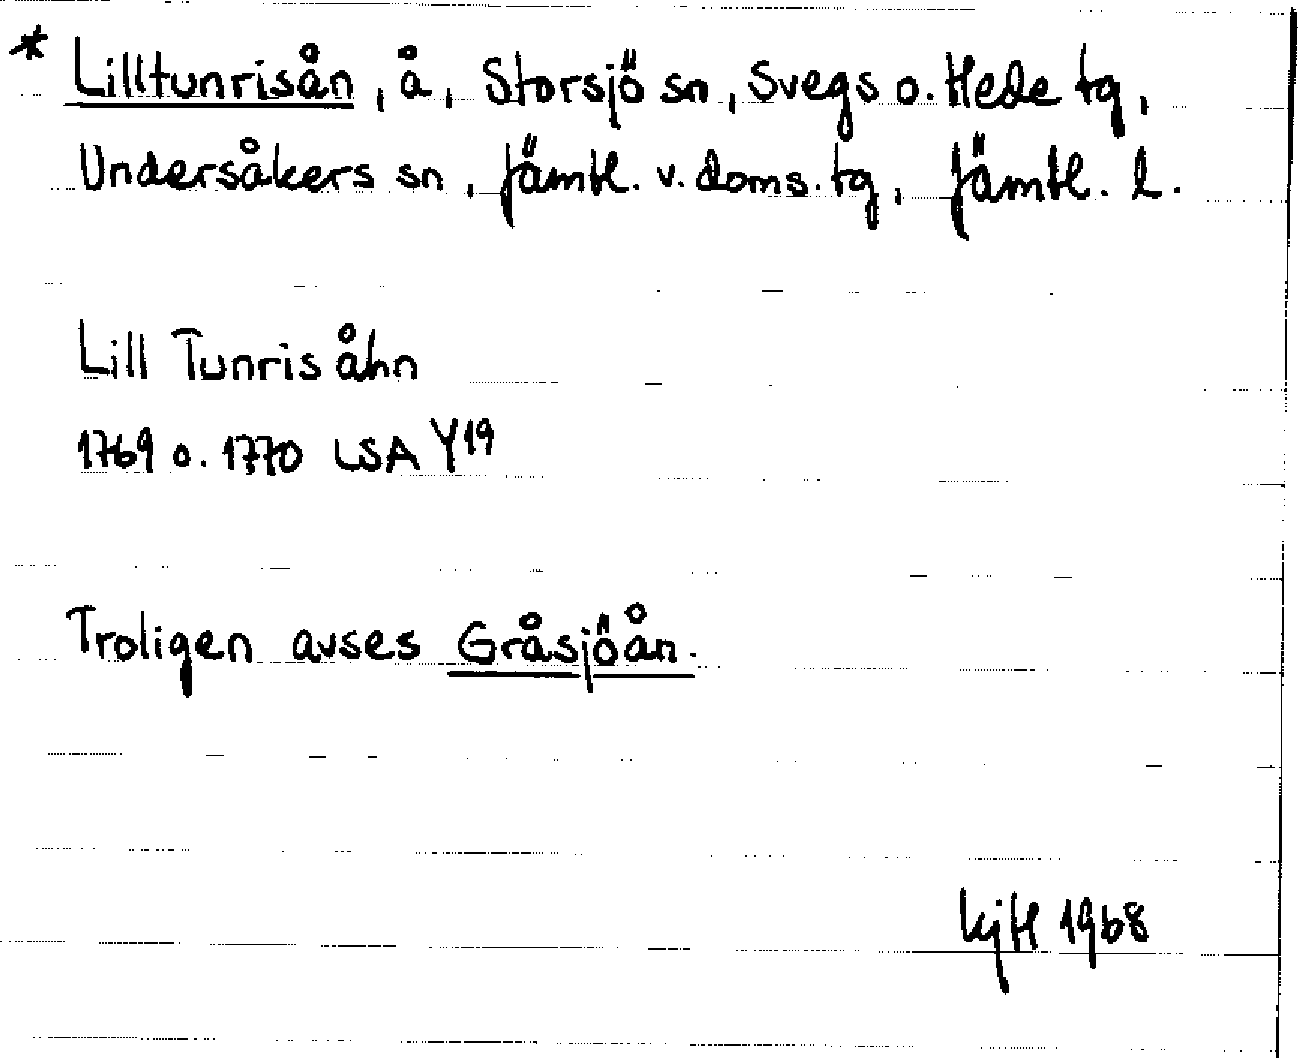 * Lilltunrisån, å, Storsjö sn, Svegs o. Hede tg,
Undersåkers sn, Jämtl. v. doms. tg, Jämtl. l.
Lill Tunris åhn
1769 o. 1770 LSA Y19
Troligen avses Gråsjöån.
KjH 1968